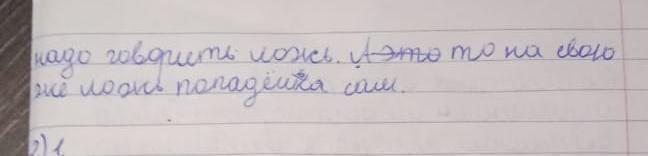 надо говорить ложь. А это то на свою
же ложь попадёшься сам.
2) 1